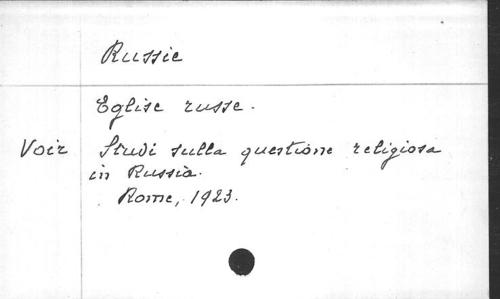 Russie
Eglise russe.
Voir Studi sulla questione religiosa
in Russia.
Rome, 1923.